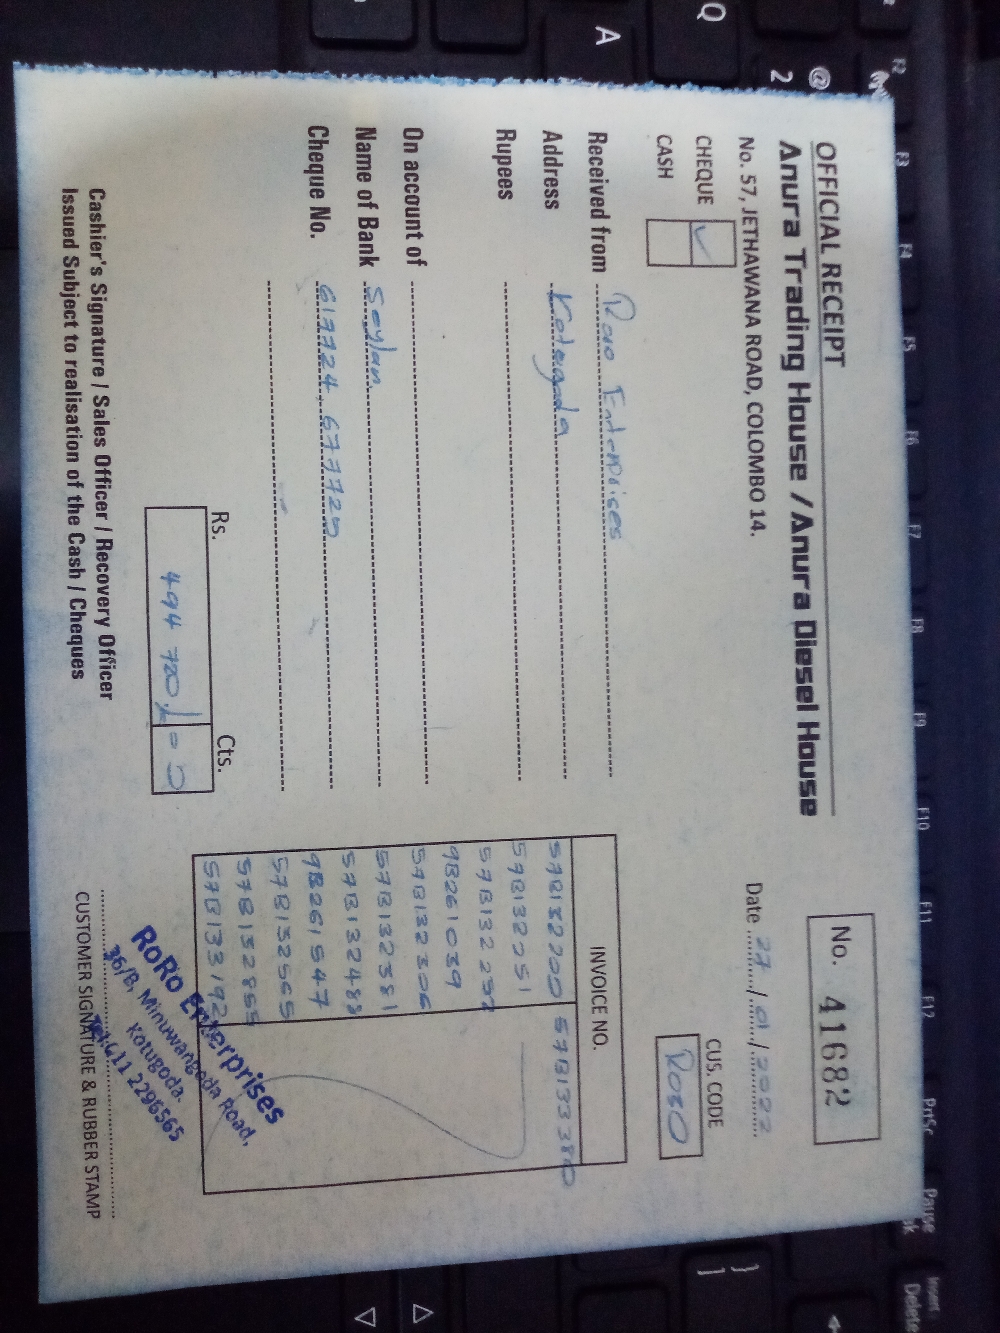 OFFICIAL RECEIPT
Anura Trading House / Anura Diesel House
No. 57, JETHAWANA ROAD, COLOMBO 14.
No. 41682
Date 27/01/2022
CHEQUE ✓
CASH
CUS. CODE
R030
Received from Roro Enterprises
Address Kotugoda
Rupees
On account of
Name of Bank Seylan
Cheque No.
Rs. Cts.
494 720/=00
INVOICE NO.
57B132200 57B133380
57B132251
57B132257
9B261039
57B132306
57B132381
57B132483
9B261547
57B132565
57B132855
57B133192
Cashier's Signature / Sales Officer / Recovery Officer
Issued Subject to realisation of the Cash / Cheques
RoRo Enterprises
36/B, Minuwangoda Road,
Kotugoda.
Tel:011 2296565
CUSTOMER SIGNATURE & RUBBER STAMP
Q
A
@
2
F2
F3
F4
F5
F6
F7
F8
F9
F10
F11
F12
PrtSc
Pause
Insert
Delete
}
]